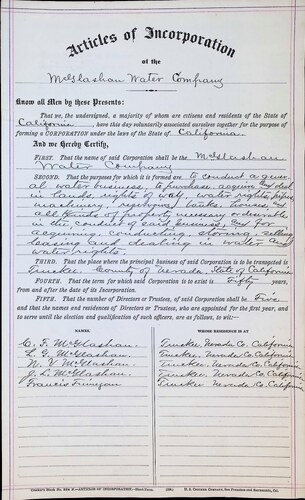 Articles of Incorporation
of the
McGlashan Water Company
Know all Men by these Presents:
That we, the undersigned, a majority of whom are citizens and residents of the State of
California, have this day voluntarily associated ourselves together for the purpose of
forming a CORPORATION under the laws of the State of California.
And we Hereby Certify,
FIRST. That the name of said Corporation shall be the McGlashan
Water Company
SECOND. That the purposes for which it is formed are to conduct a gener-
al water business, to purchase, acquire and deal
in lands, rights of way, water rights, pipes
machinery, reservoirs, tanks, houses, and
all kinds of property necessary or desirable
in the conduct of said business; and for
acquiring, conducting, storing, selling
leasing and dealing in water and
water rights.
THIRD. That the place where the principal business of said corporation is to be transacted is
Truckee, County of Nevada, State of California
FOURTH. That the term for which said Corporation is to exist is fifty years,
from and after the date of its incorporation.
FIFTH. That the number of Directors or Trustees, of said Corporation shall be Five
and that the names and residences of Directors or Trustees, who are appointed for the first year, and
to serve until the election and qualification of such officers, are as follows, to wit:
NAMES. WHOSE RESIDENCE IS AT
C. F. McGlashan Truckee, Nevada Co. California
L. G. McGlashan Truckee, Nevada Co. California
N. V. McGlashan Truckee, Nevada Co. California
J. L. McGlashan Truckee, Nevada Co. California
Francis Truckee, Nevada Co. California
ARTICLES OF INCORPORATION H. S. CROCKER COMPANY, San Francisco and Sacramento, Cal.